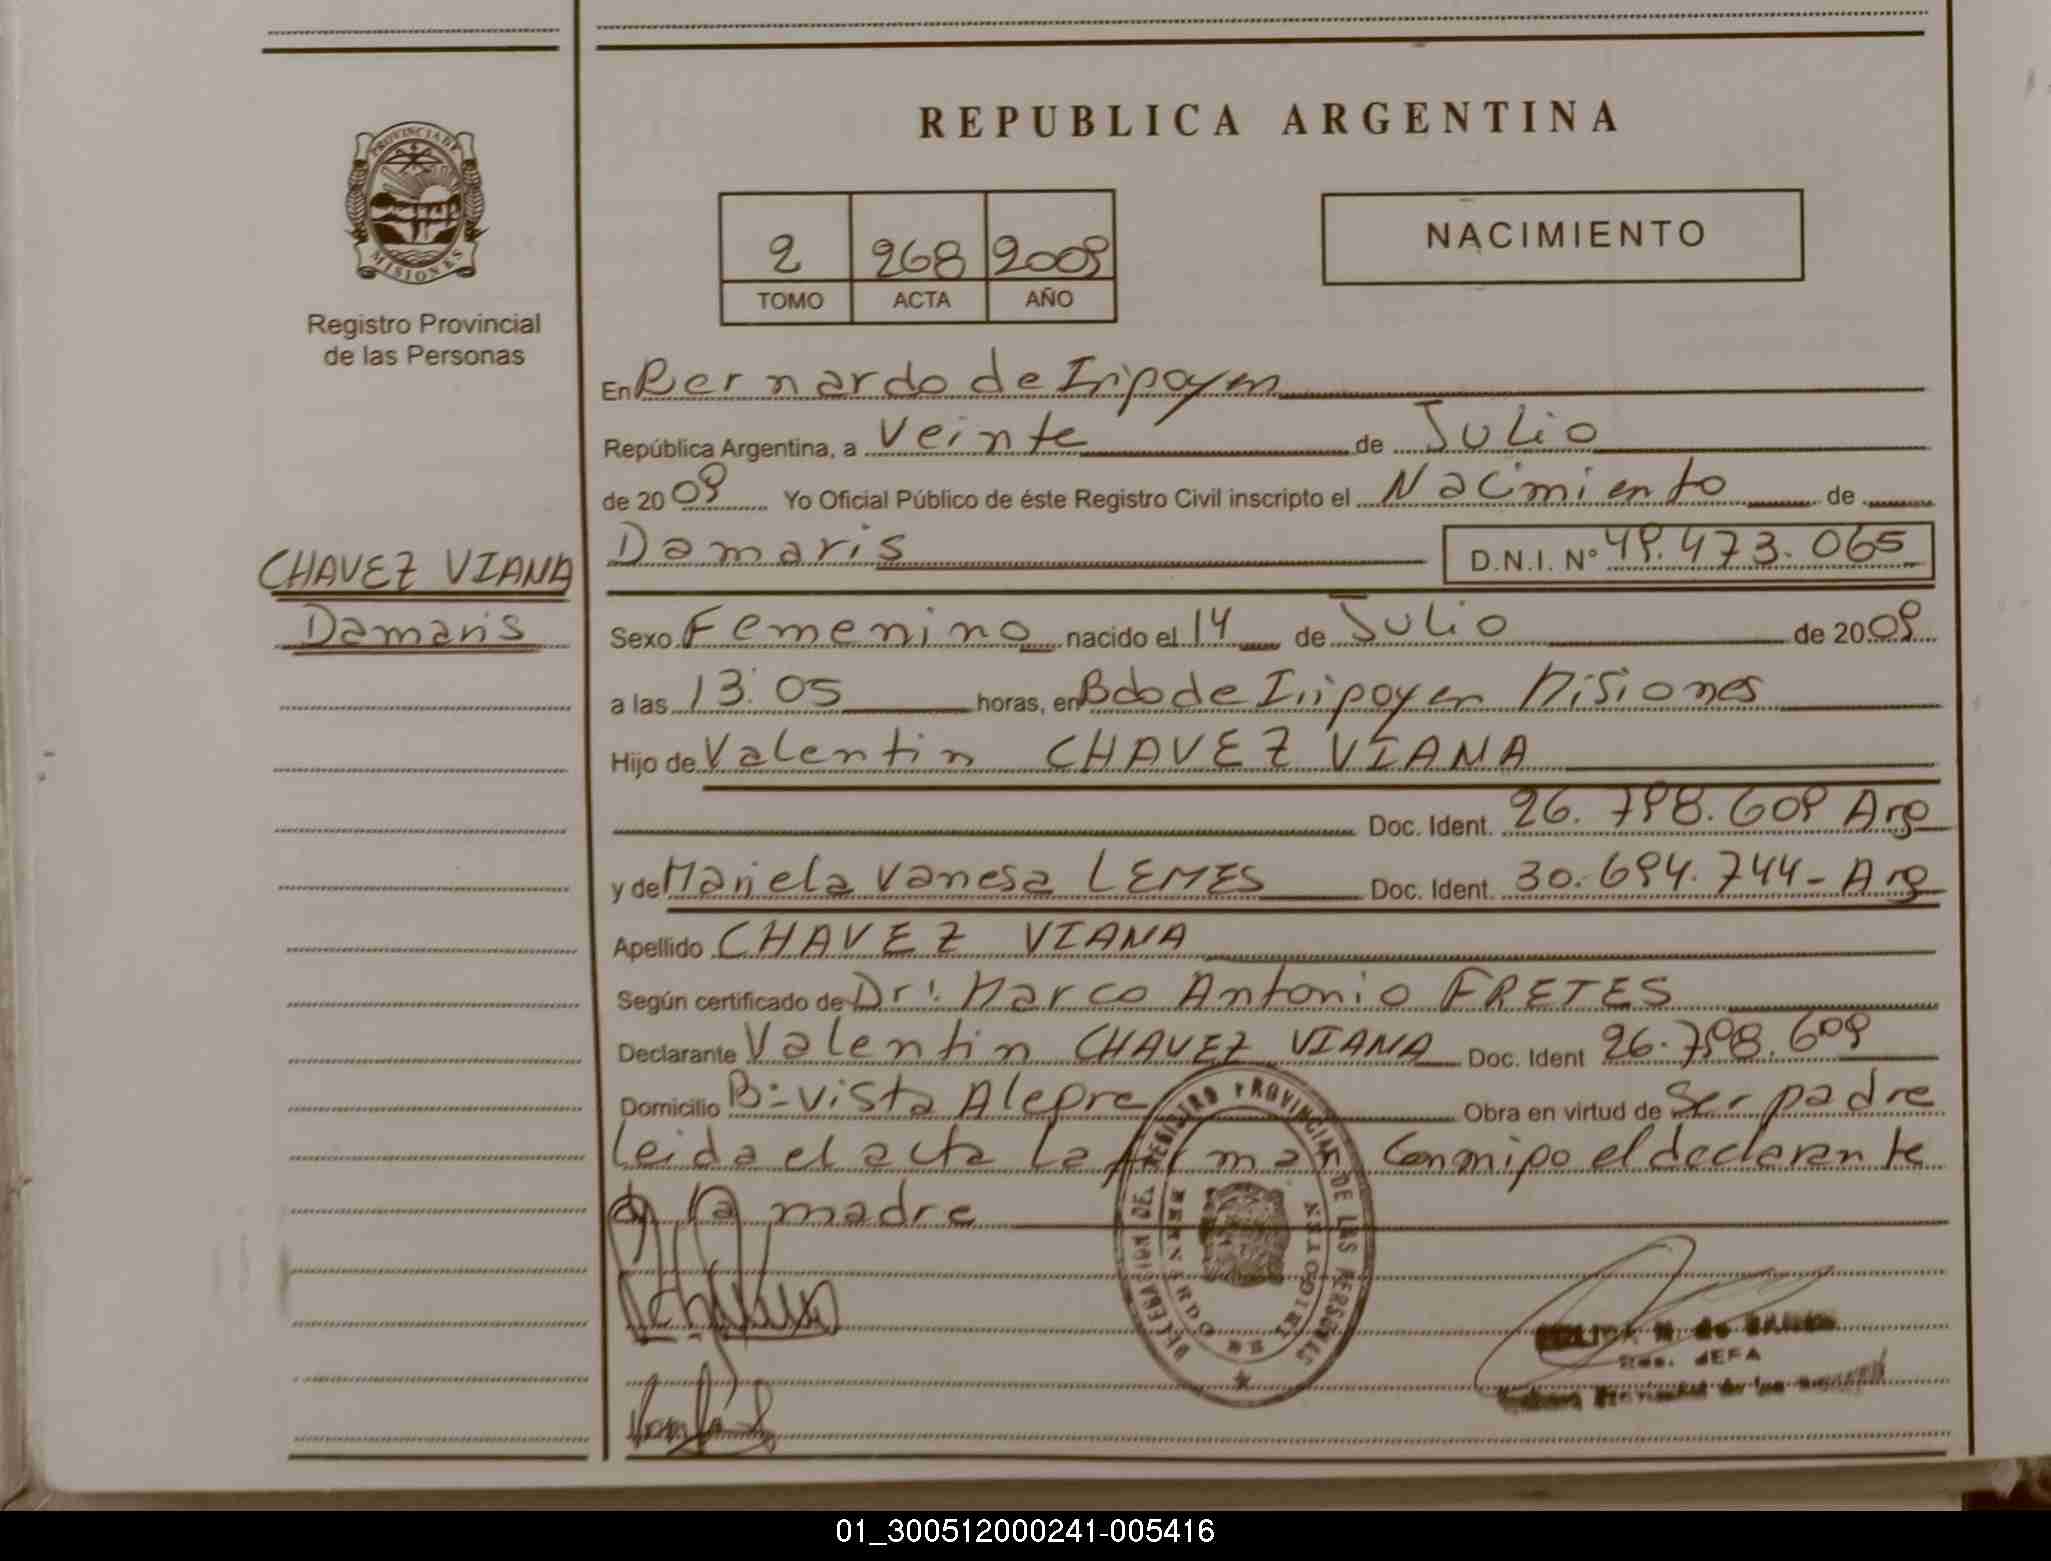 REPUBLICA ARGENTINA
PROVINCIA DE MISIONES
Registro Provincial
de las Personas
2 268 2009
TOMO ACTA AÑO
NACIMIENTO
En Bernardo de Iripoyen
República Argentina, a Veinte de Julio
de 2009 Yo Oficial Público de éste Registro Civil inscripto el Nacimiento de
CHAVEZ VIANA
Damaris
Damaris D.N.I. N° 49.473.065
Sexo Femenino nacido el 14 de Julio de 2009
a las 13:05 horas, en Bdo de Iripoyen Misiones
Hijo de Valentin CHAVEZ VIANA
Doc. Ident. 26.798.609 Arg
y de Mariela Vanesa LEMES Doc. Ident. 30.694.744- Arg
Apellido CHAVEZ VIANA
Según certificado de Dr: Marco Antonio FRETES
Declarante Valentin CHAVEZ VIANA Doc. Ident 26.798.609
Domicilio B= Vista Alegre Obra en virtud de Ser padre
Leida el acta la firman Conmigo el declarante
y la madre
DEL REGISTRO PROVINCIAL DE LAS PERSONAS
BERNARDO DE IRIGOYEN
JEFA
01_300512000241-005416